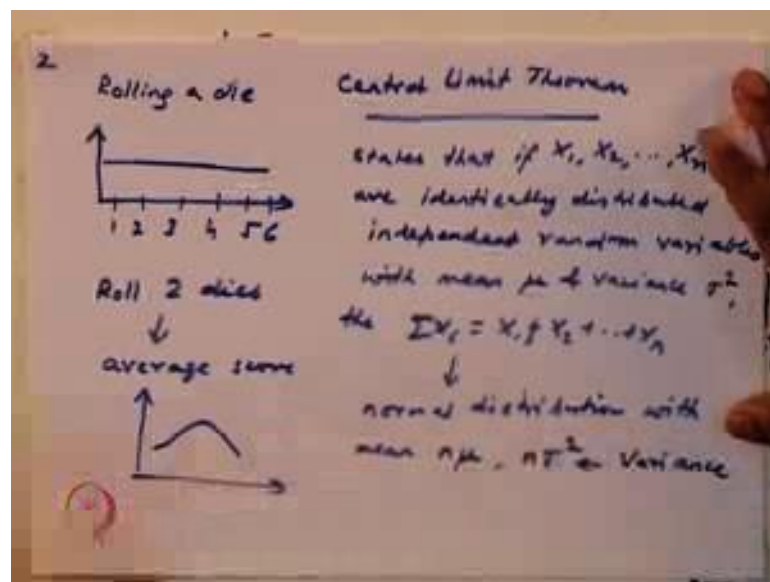 2
Rolling a die
1 2 3 4 5 6
Roll 2 dies
↓
average score
Central Limit Theorem
states that if X₁, X₂, ..., Xₙ
are identically distributed
independent random variables
with mean μ & variance σ²,
the ΣXᵢ = X₁ + X₂ + ... + Xₙ
↓
normal distribution with
mean nμ, nσ² ← Variance